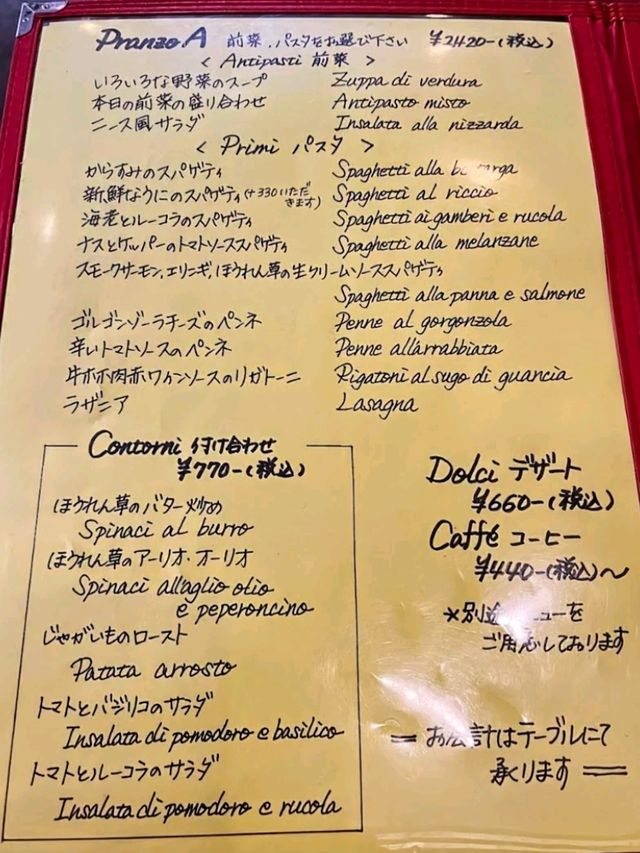 Pranzo A 前菜、パスタをお選び下さい ¥2420-(税込)
< Antipasti 前菜 >
いろいろな野菜のスープ Zuppa di verdura
本日の前菜の盛り合わせ Antipasto misto
ニース風サラダ Insalata alla nizzarda
< Primi パスタ >
からすみのスパゲティ Spaghetti alla
新鮮なうにのスパゲティ(+330いただきます) Spaghetti al riccio
海老とルーコラのスパゲティ Spaghetti ai gamberi e rucola
ナスとケッパーのトマトソーススパゲティ Spaghetti alla melanzane
スモークサーモン、エリンギ、ほうれん草の生クリームソーススパゲティ
Spaghetti alla panna e salmone
ゴルゴンゾーラチーズのペンネ Penne al gorgonzola
辛いトマトソースのペンネ Penne all'arrabbiata
牛ホホ肉赤ワインソースのリガトーニ Rigatoni al sugo di guancia
ラザニア Lasagna
Contorni 付け合わせ
¥770-(税込)
ほうれん草のバター炒め
Spinaci al burro
ほうれん草のアーリオ・オーリオ
Spinaci all'aglio olio
e peperoncino
じゃがいものロースト
Patata arrosto
トマトとバジリコのサラダ
Insalata di pomodoro e basilico
トマトとルーコラのサラダ
Insalata di pomodoro e rucola
Dolci デザート
¥660-(税込)
Caffé コーヒー
¥440-(税込)～
*別途 ューを
ご用意しております
= お会計はテーブルにて
承ります =